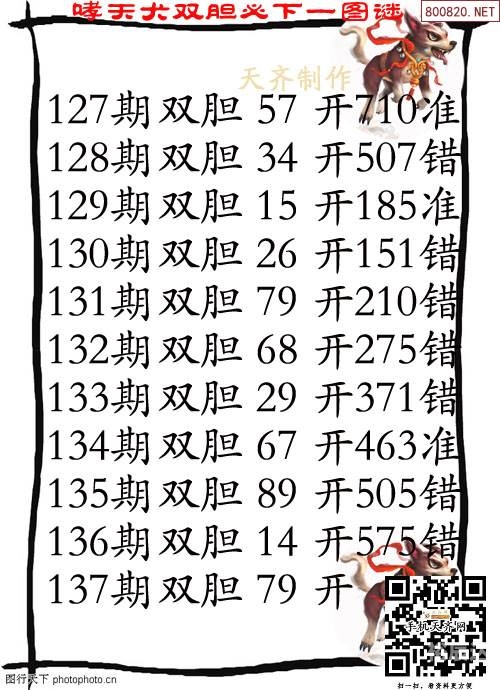 哮天犬双胆必下一图谜
800820.NET
天齐制作
127期双胆 57 开710准
128期双胆 34 开507错
129期双胆 15 开185准
130期双胆 26 开151错
131期双胆 79 开210错
132期双胆 68 开275错
133期双胆 29 开371错
134期双胆 67 开463准
135期双胆 89 开505错
136期双胆 14 开575错
137期双胆 79 开
手机天齐网
扫一扫，看资料更方便
图行天下 photophoto.cn